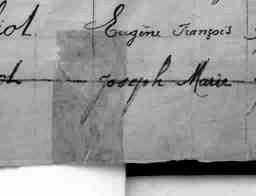 Eugène François
Joseph Marie